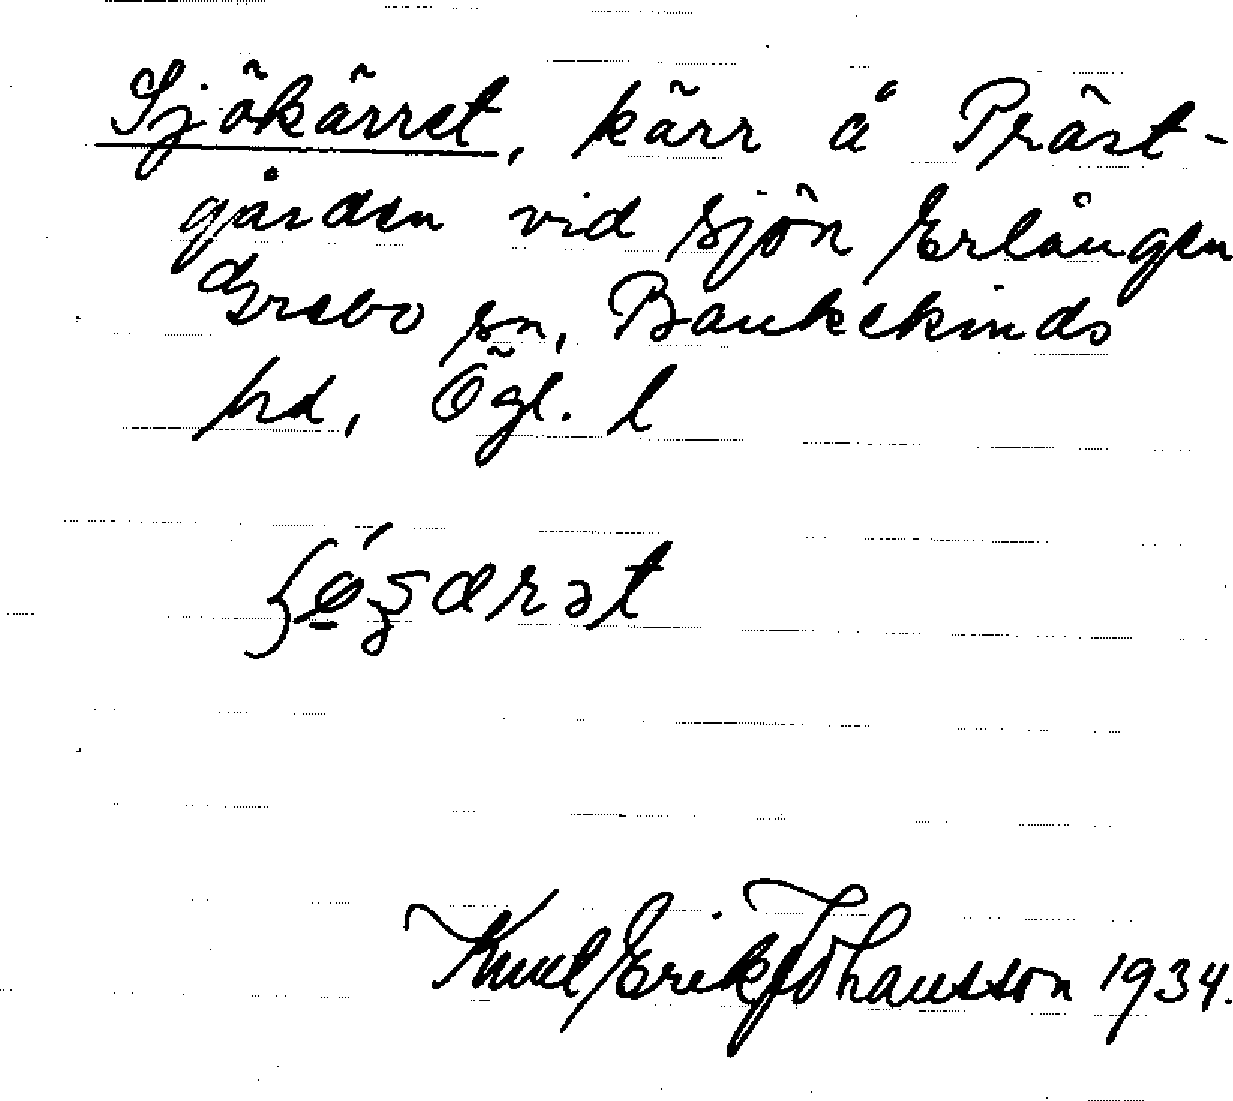 Sjökärret, kärr å Präst-
gården vid sjön Erlången
Grebo sn, Bankekinds
hd, Ögl. l
Knut Erik Johansson 1934.